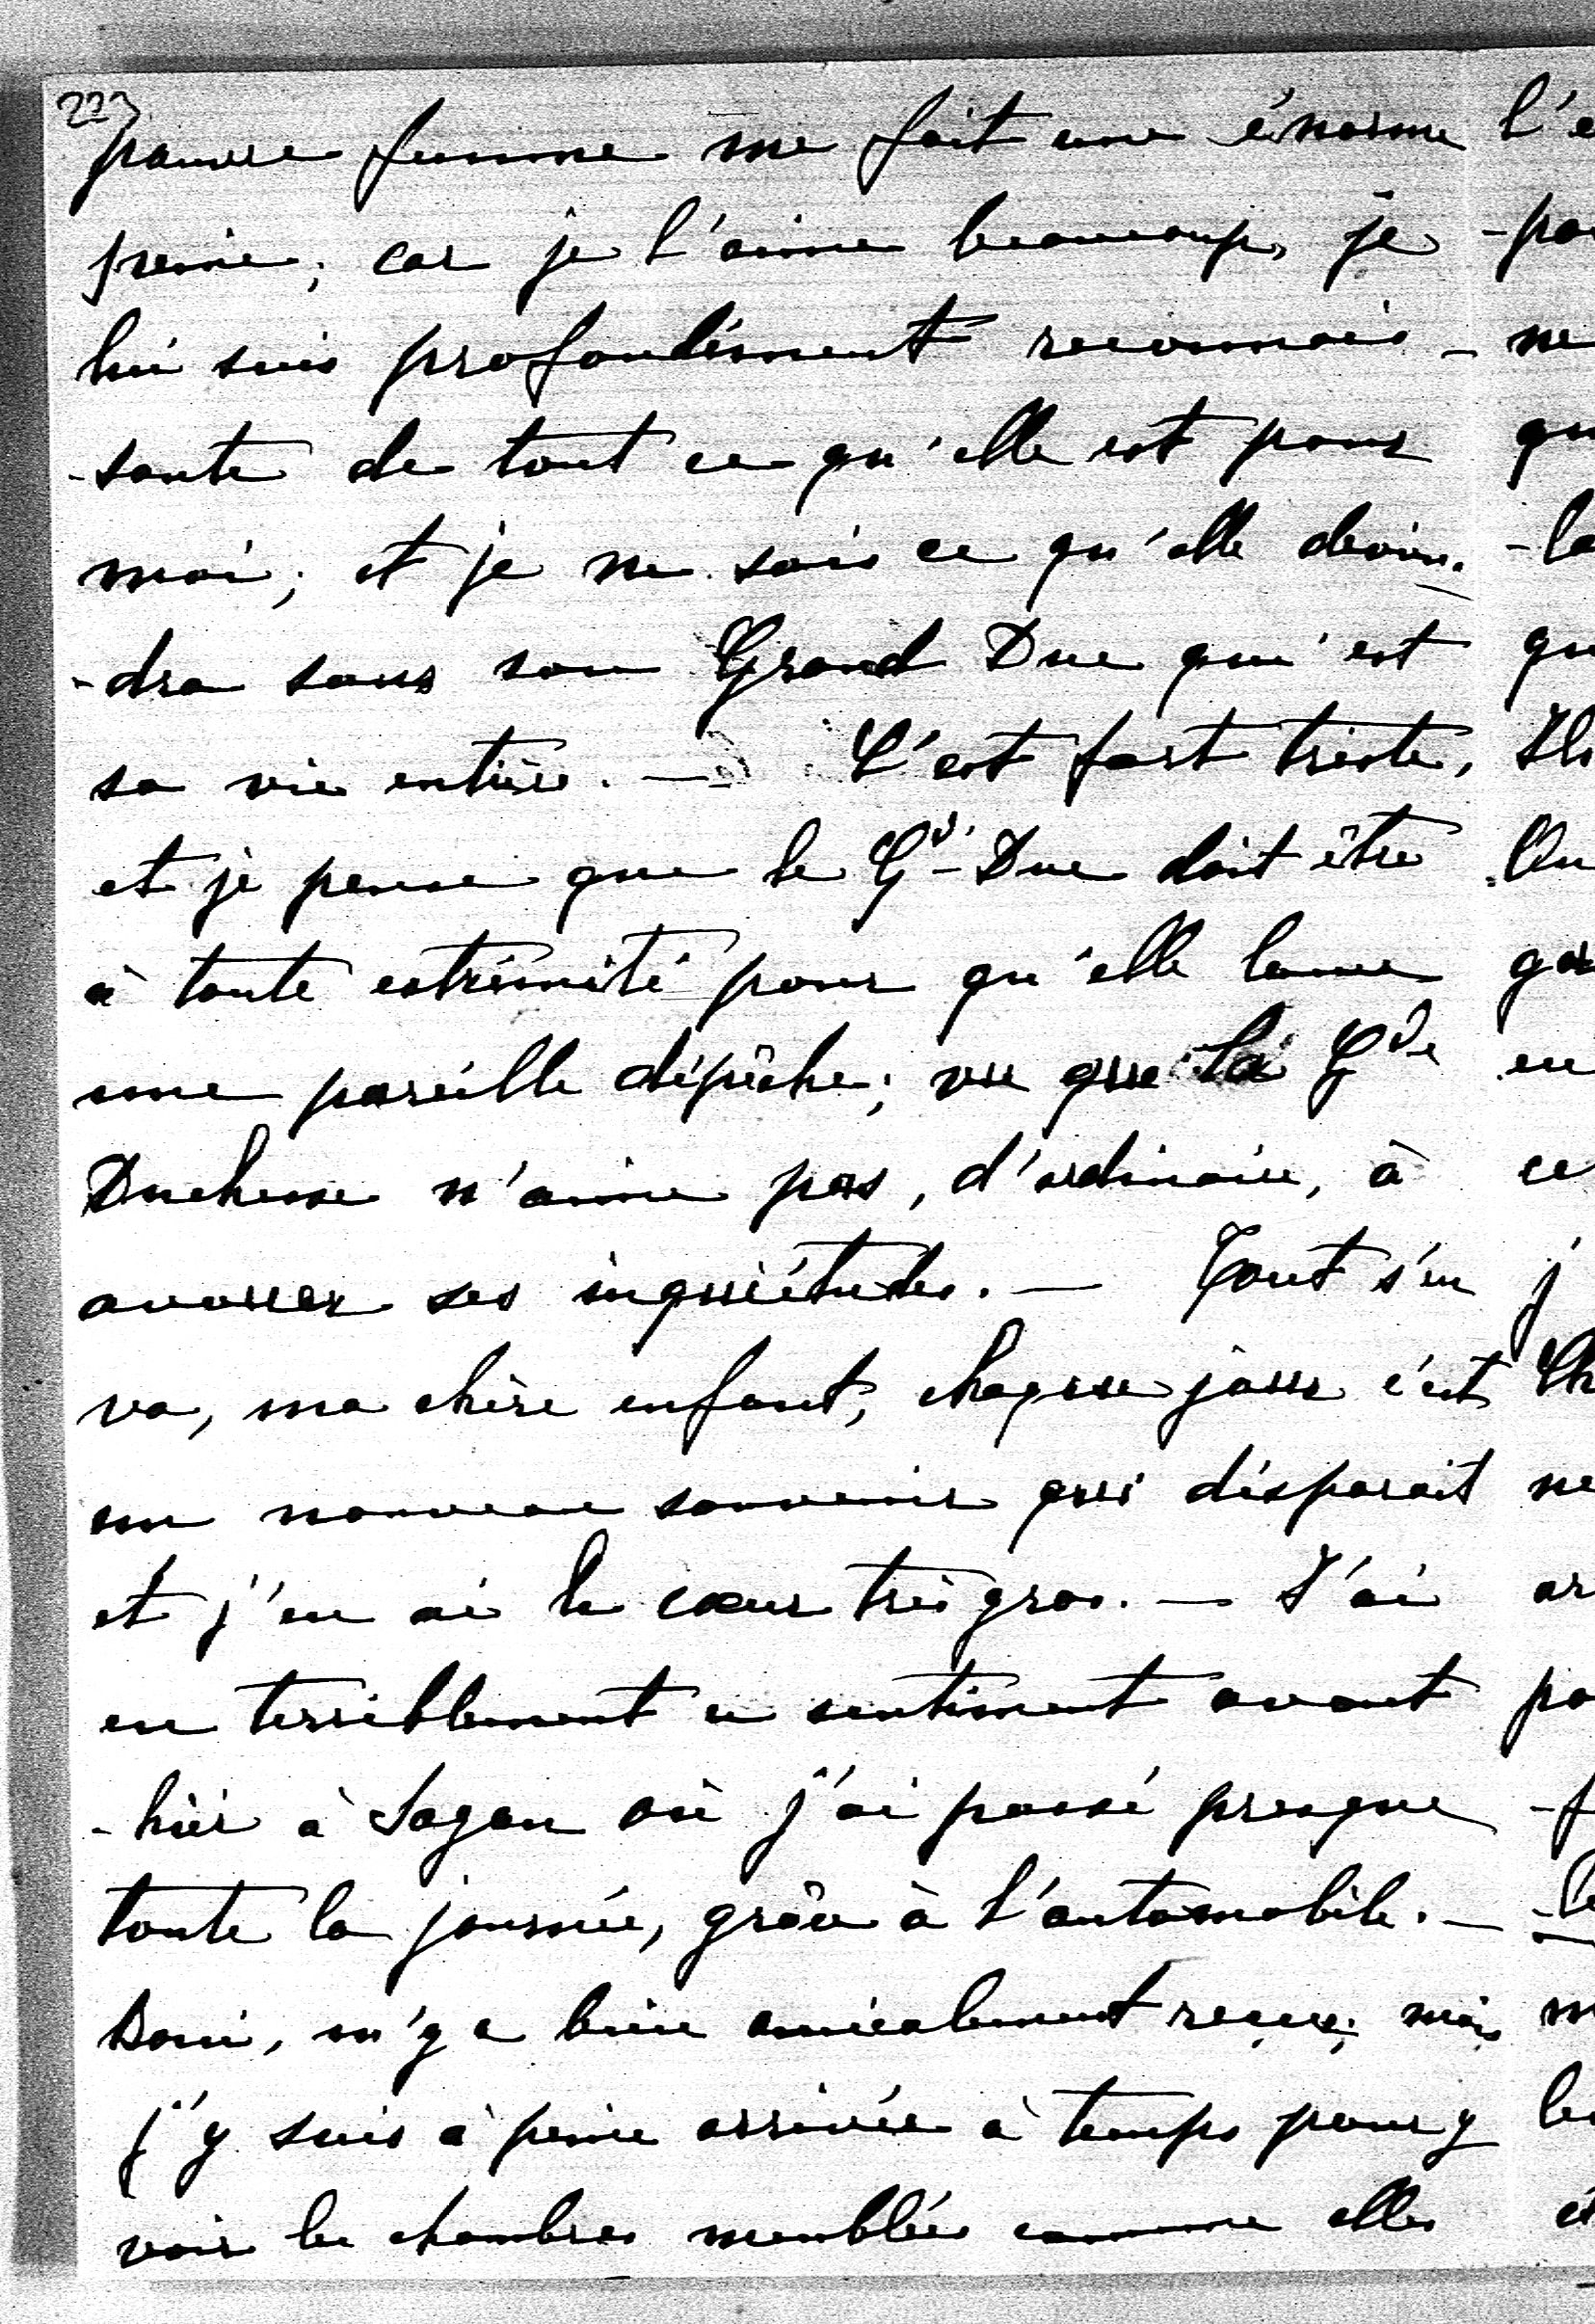 223
pauvre femme me fait une énorme
peine, car je l'aime beaucoup, je
lui suis profondément reconnais-
-sante de tout ce qu'elle est pour
moi, et je ne sais ce qu'elle devien-
-dra sans son Grand Duc qui est
sa vie entière. — C'est fort triste,
et je pense que le Gd-Duc doit être
à toute extrémité pour qu'elle lance
une pareille dépêche; vu que la Gde
Duchesse n'aime pas, d'ordinaire, à
avouer ses inquiétudes. — Tout s'en
va, ma chère enfant, chaque jour c'est
un nouveau souvenir qui disparait
et j'en ai le cœur très gros. — J'ai
eu terriblement ce sentiment avant
-hier à Sagan où j'ai passé presque
toute la journée, grâce à l'automobile. —
Boni, m'y a bien amicalement reçue; mais
j'y suis à peine arrivée à temps pour y
voir les chambres meublées comme elles
l'e
-pa
ne
qu
-la
qu
Il
On
ga
en
ce
j'
Ch
ne
ar
pa
-f
-le
m
le